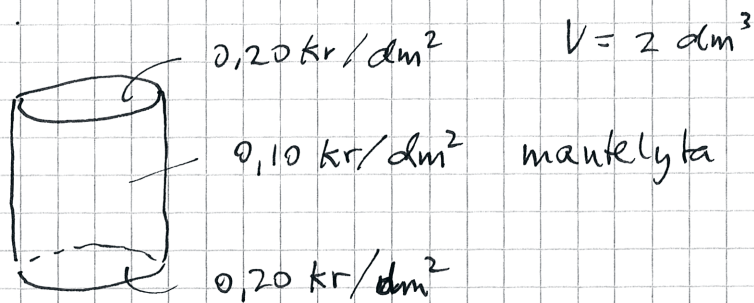 0,20 kr/dm²
V = 2 dm³
0,10 kr/dm² mantelyta
0,20 kr/dm²